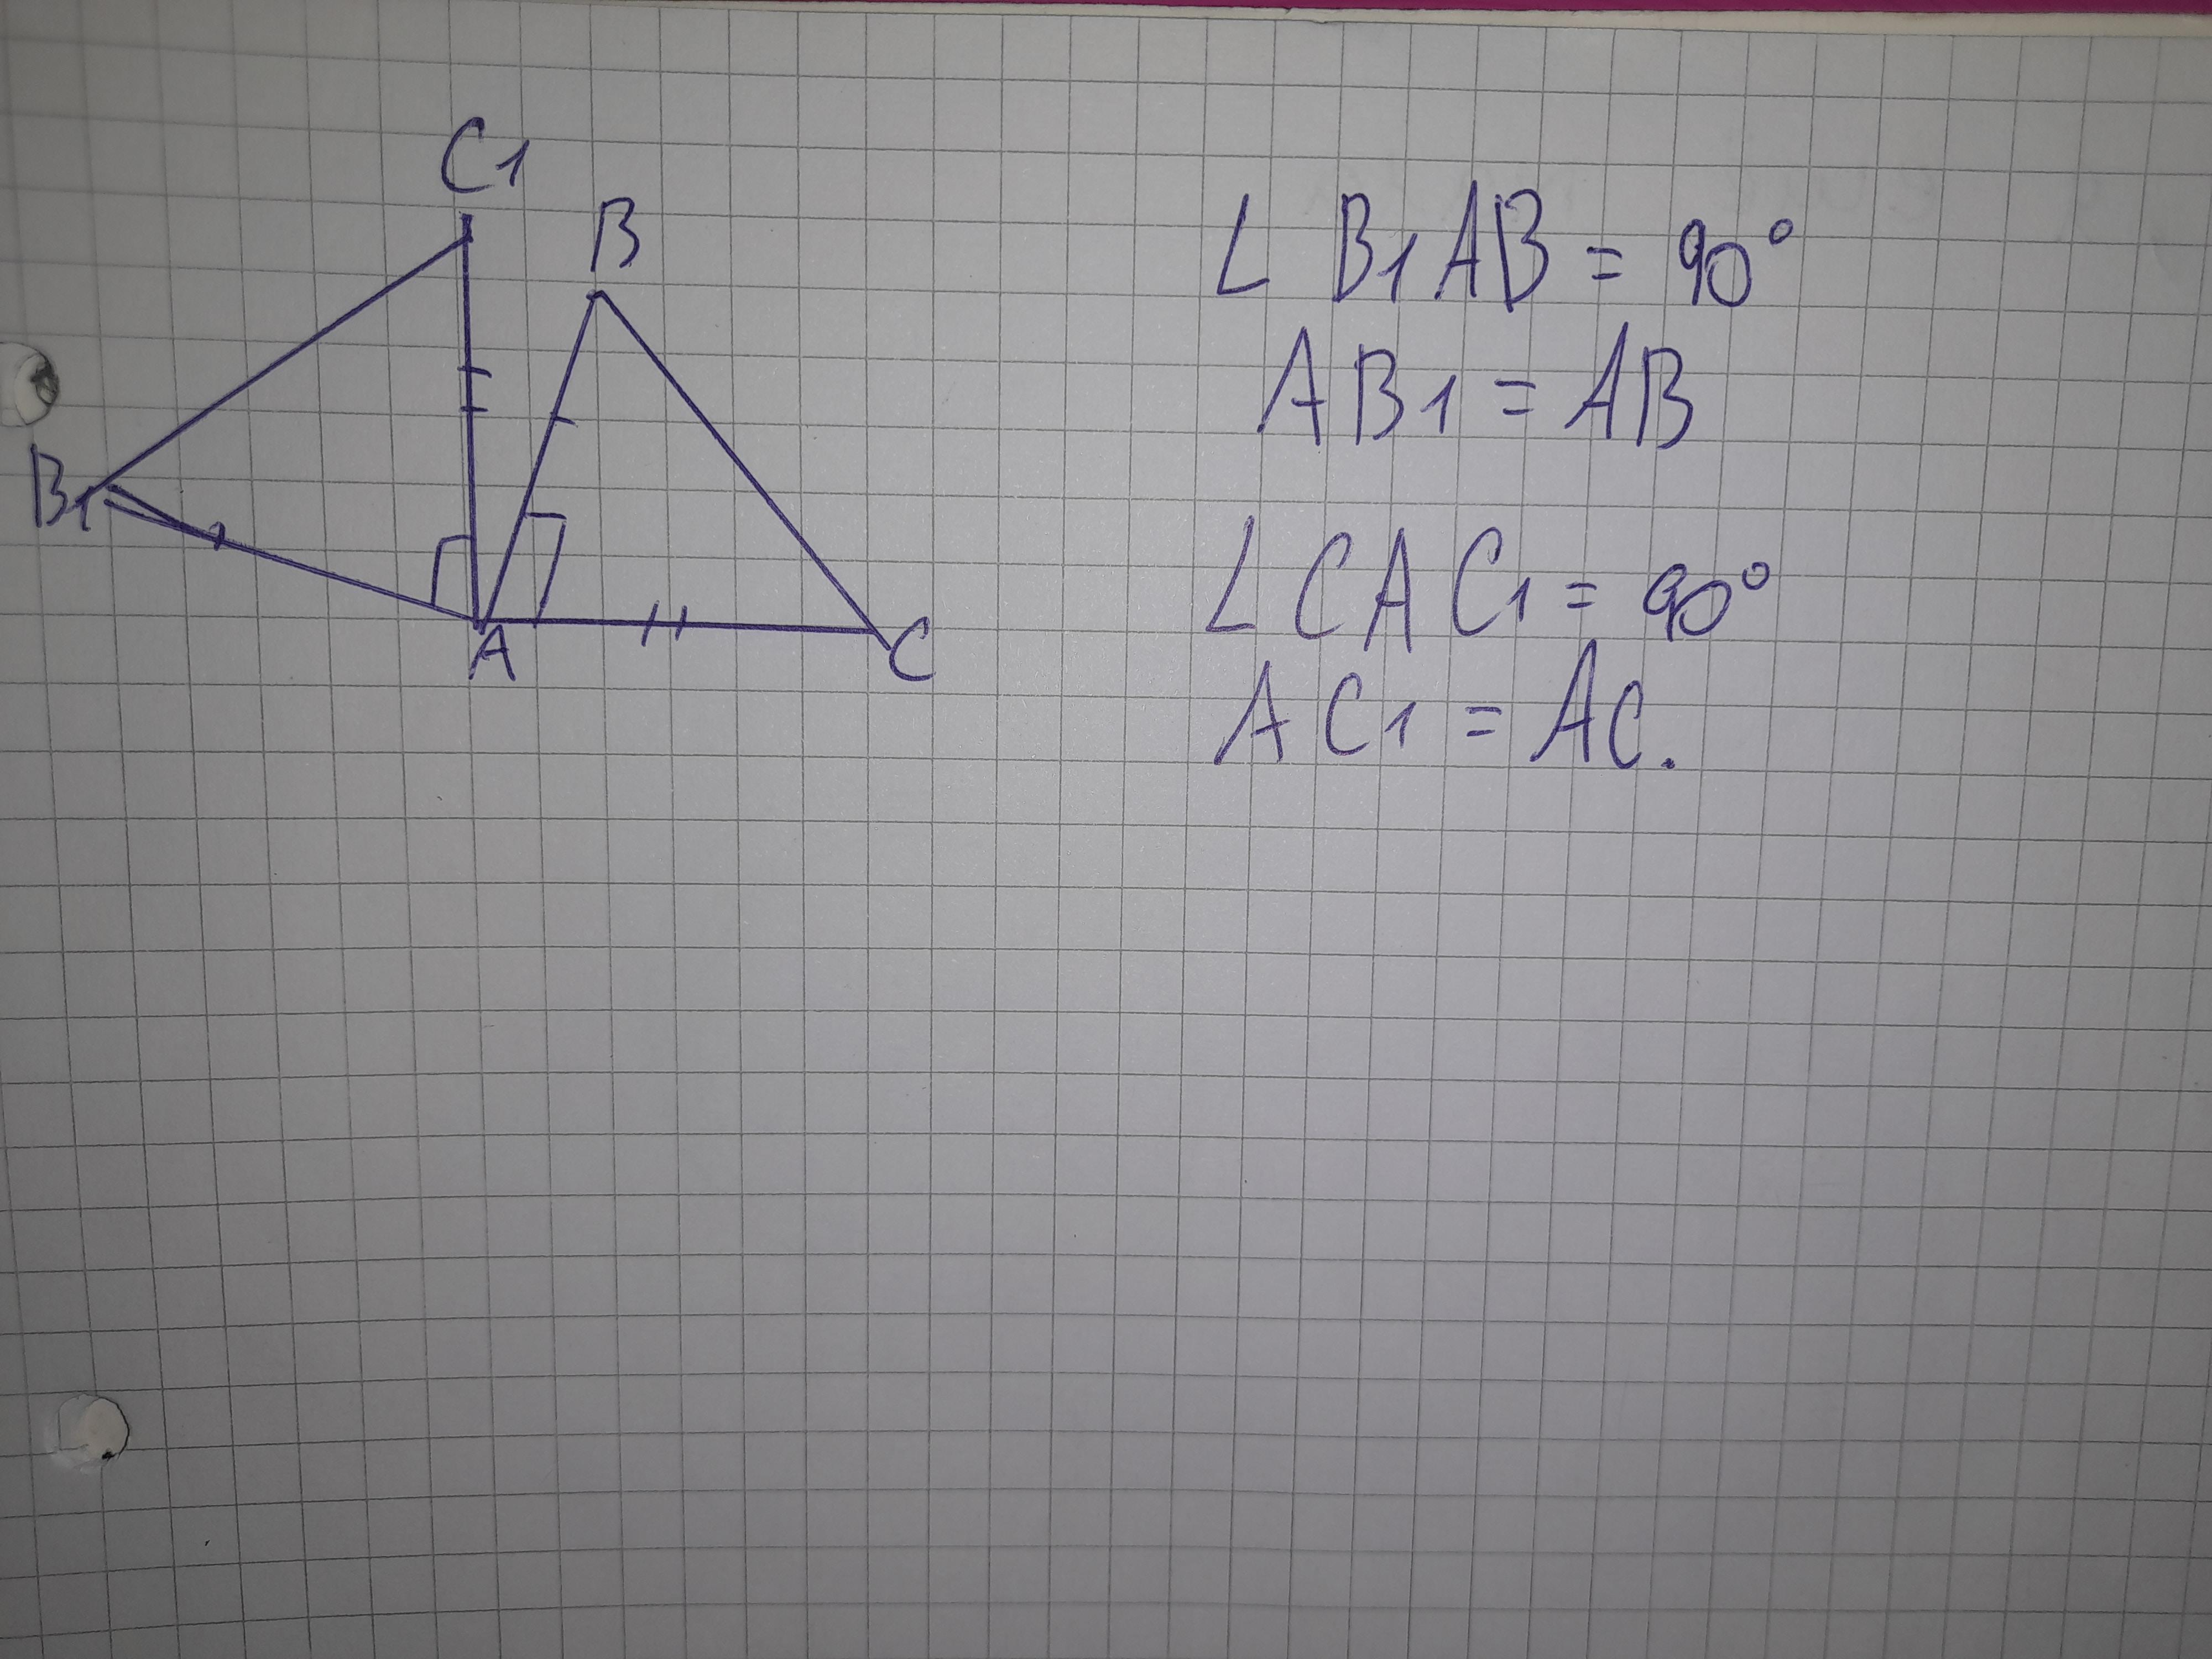 C1
B
B1
A
C
∠ B1AB = 90°
AB1 = AB
∠CAC1 = 90°
AC1 = AC.